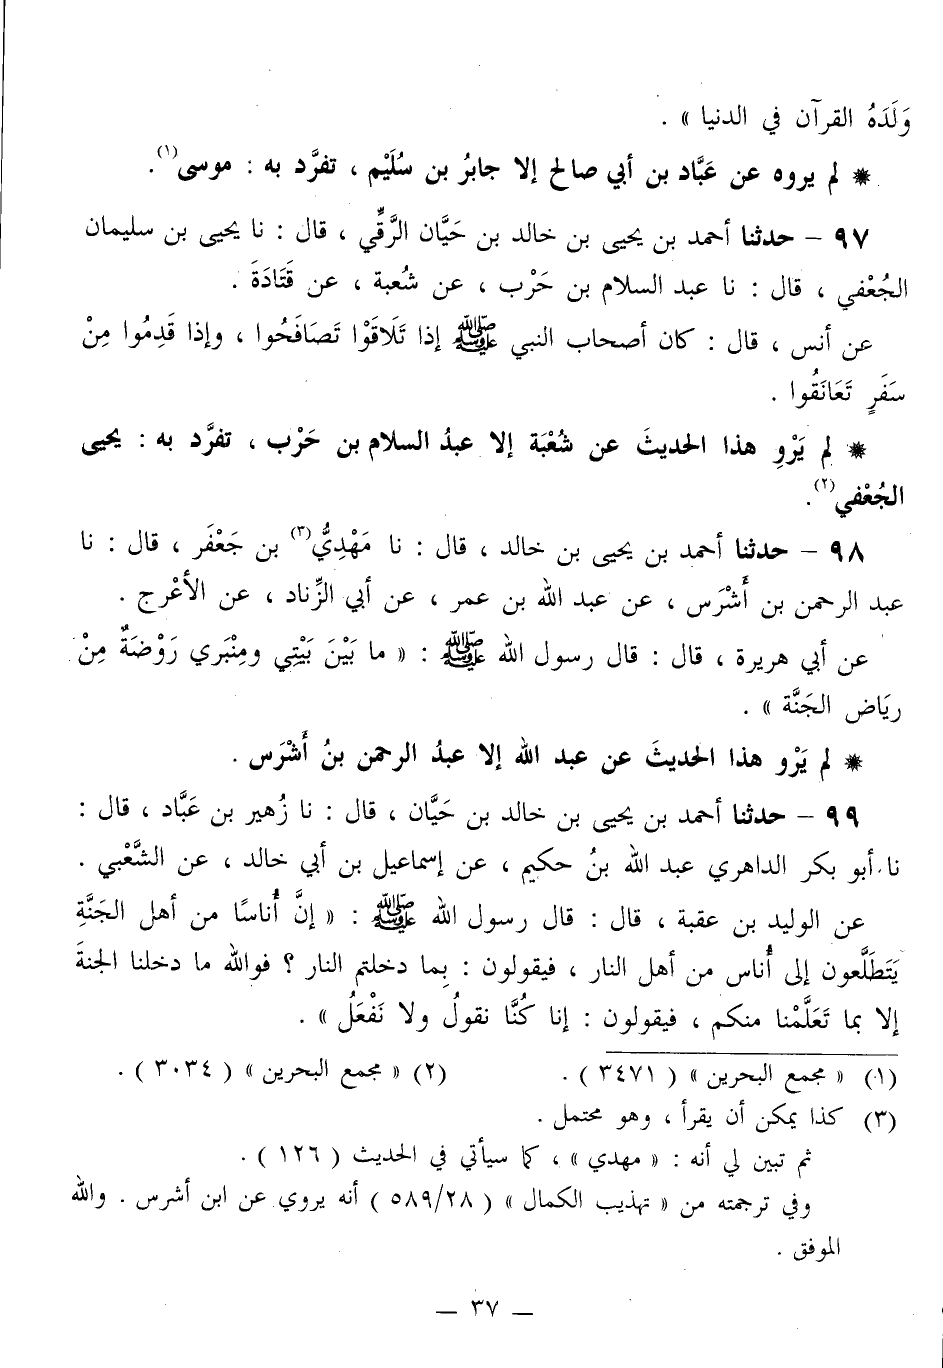 وَلَدَهُ القرآن في الدنيا » .
* لم يروه عن عَبَّاد بن أبي صالح إلا جابرُ بن سُلَيْم ، تفرَّد به : موسى(١).
٩٧ – حدثنا أحمد بن يحيى بن خالد بن حَيَّان الرَّقِّي ، قال : نا يحيى بن سليمان
الجُعْفي ، قال : نا عبد السلام بن حَرْب ، عن شُعبة ، عن قَتَادَةَ .
عن أنس ، قال : كان أصحاب النبي ﷺ إذا تَلَاقَوْا تَصَافَحُوا ، وإذا قَدِمُوا مِنْ
سَفَرٍ تَعَانَقُوا .
* لم يَرْوِ هذا الحديثَ عن شُعْبَة إلا عبدُ السلام بن حَرْب ، تفرَّد به : يحيى
الجُعْفي(٢).
٩٨ – حدثنا أحمد بن يحيى بن خالد ، قال : نا مَهْدِيُّ(٣) بن جَعْفَر ، قال : نا
عبد الرحمن بن أَشْرَس ، عن عبد الله بن عمر ، عن أبي الزِّناد ، عن الأعْرج .
عن أبي هريرة ، قال : قال رسول الله ﷺ : « ما بَيْنَ بَيْتِي ومِنْبَري رَوْضَةٌ مِنْ
ريَاض الجَنَّة » .
* لم يَرْو هذا الحديثَ عن عبد الله إلا عبدُ الرحمن بنُ أَشْرَس .
٩٩ – حدثنا أحمد بن يحيى بن خالد بن حَيَّان ، قال : نا زُهير بن عَبَّاد ، قال :
نا أبو بكر الداهري عبد الله بنُ حكيم ، عن إسماعيل بن أبي خالد ، عن الشَّعْبي .
عن الوليد بن عقبة ، قال : قال رسول الله ﷺ : « إنَّ أُناسًا من أهل الجَنَّةِ
يَتَطَلَّعون إلى أُناس من أهل النار ، فيقولون : بِما دخلتم النار ؟ فوالله ما دخلنا الجنةَ
إلا بما تَعَلَّمْنا منكم ، فيقولون : إنا كُنَّا نقولُ ولا نَفْعَلُ » .
(١) « مجمع البحرين » ( ٣٤٧١ ) . (٢) « مجمع البحرين » ( ٣٠٣٤ ) .
(٣) كذا يمكن أن يقرأ ، وهو محتمل .
ثم تبين لي أنه : « مهدي » ، كما سيأتي في الحديث ( ١٢٦ ) .
وفي ترجمته من « تهذيب الكمال » ( ٥٨٩/٢٨ ) أنه يروي عن ابن أشرس . والله
الموفق .
— ٣٧ —